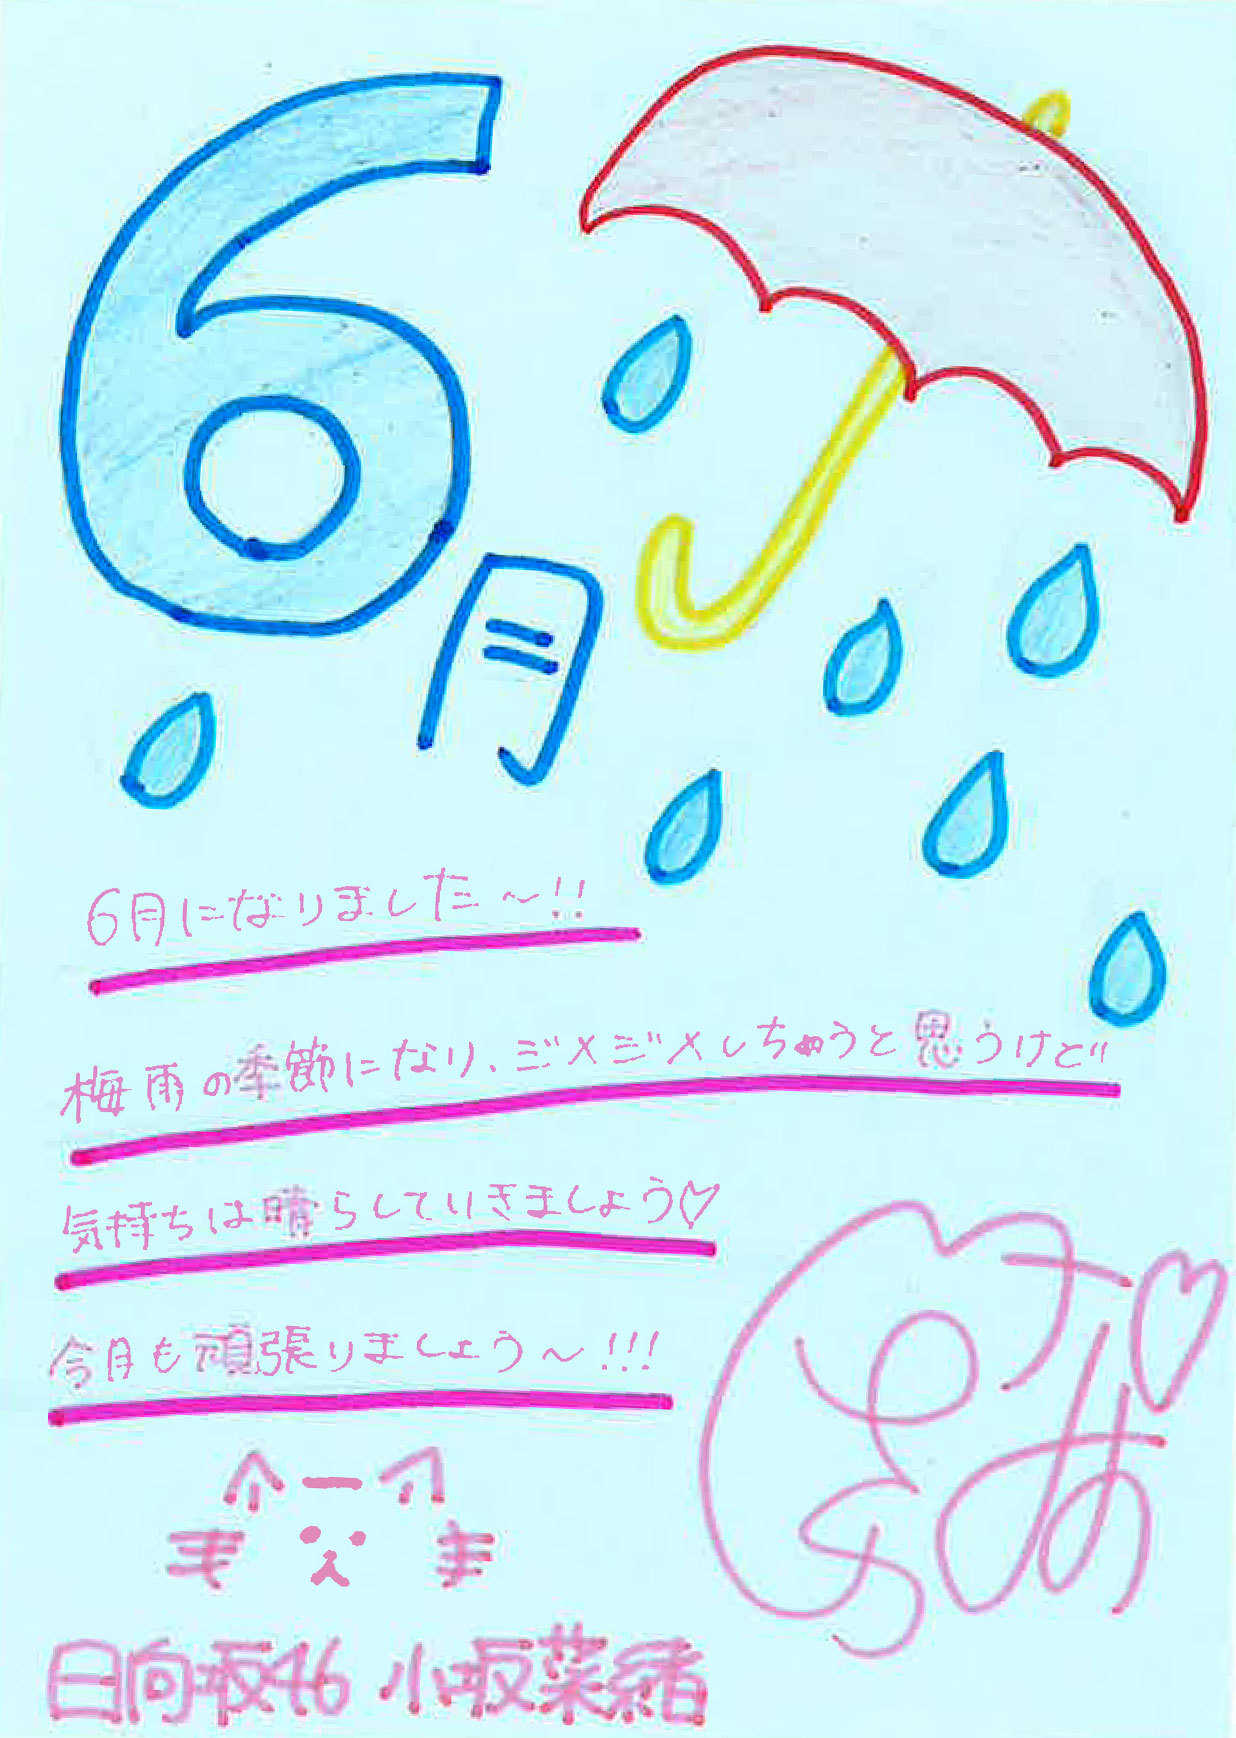 6月
6月になりました〜!!
梅雨の季節になり、ジメジメしちゃうと思うけど
気持ちは晴らしていきましょう♡
今月も頑張りましょう〜!!!
日向坂46 小坂菜緒